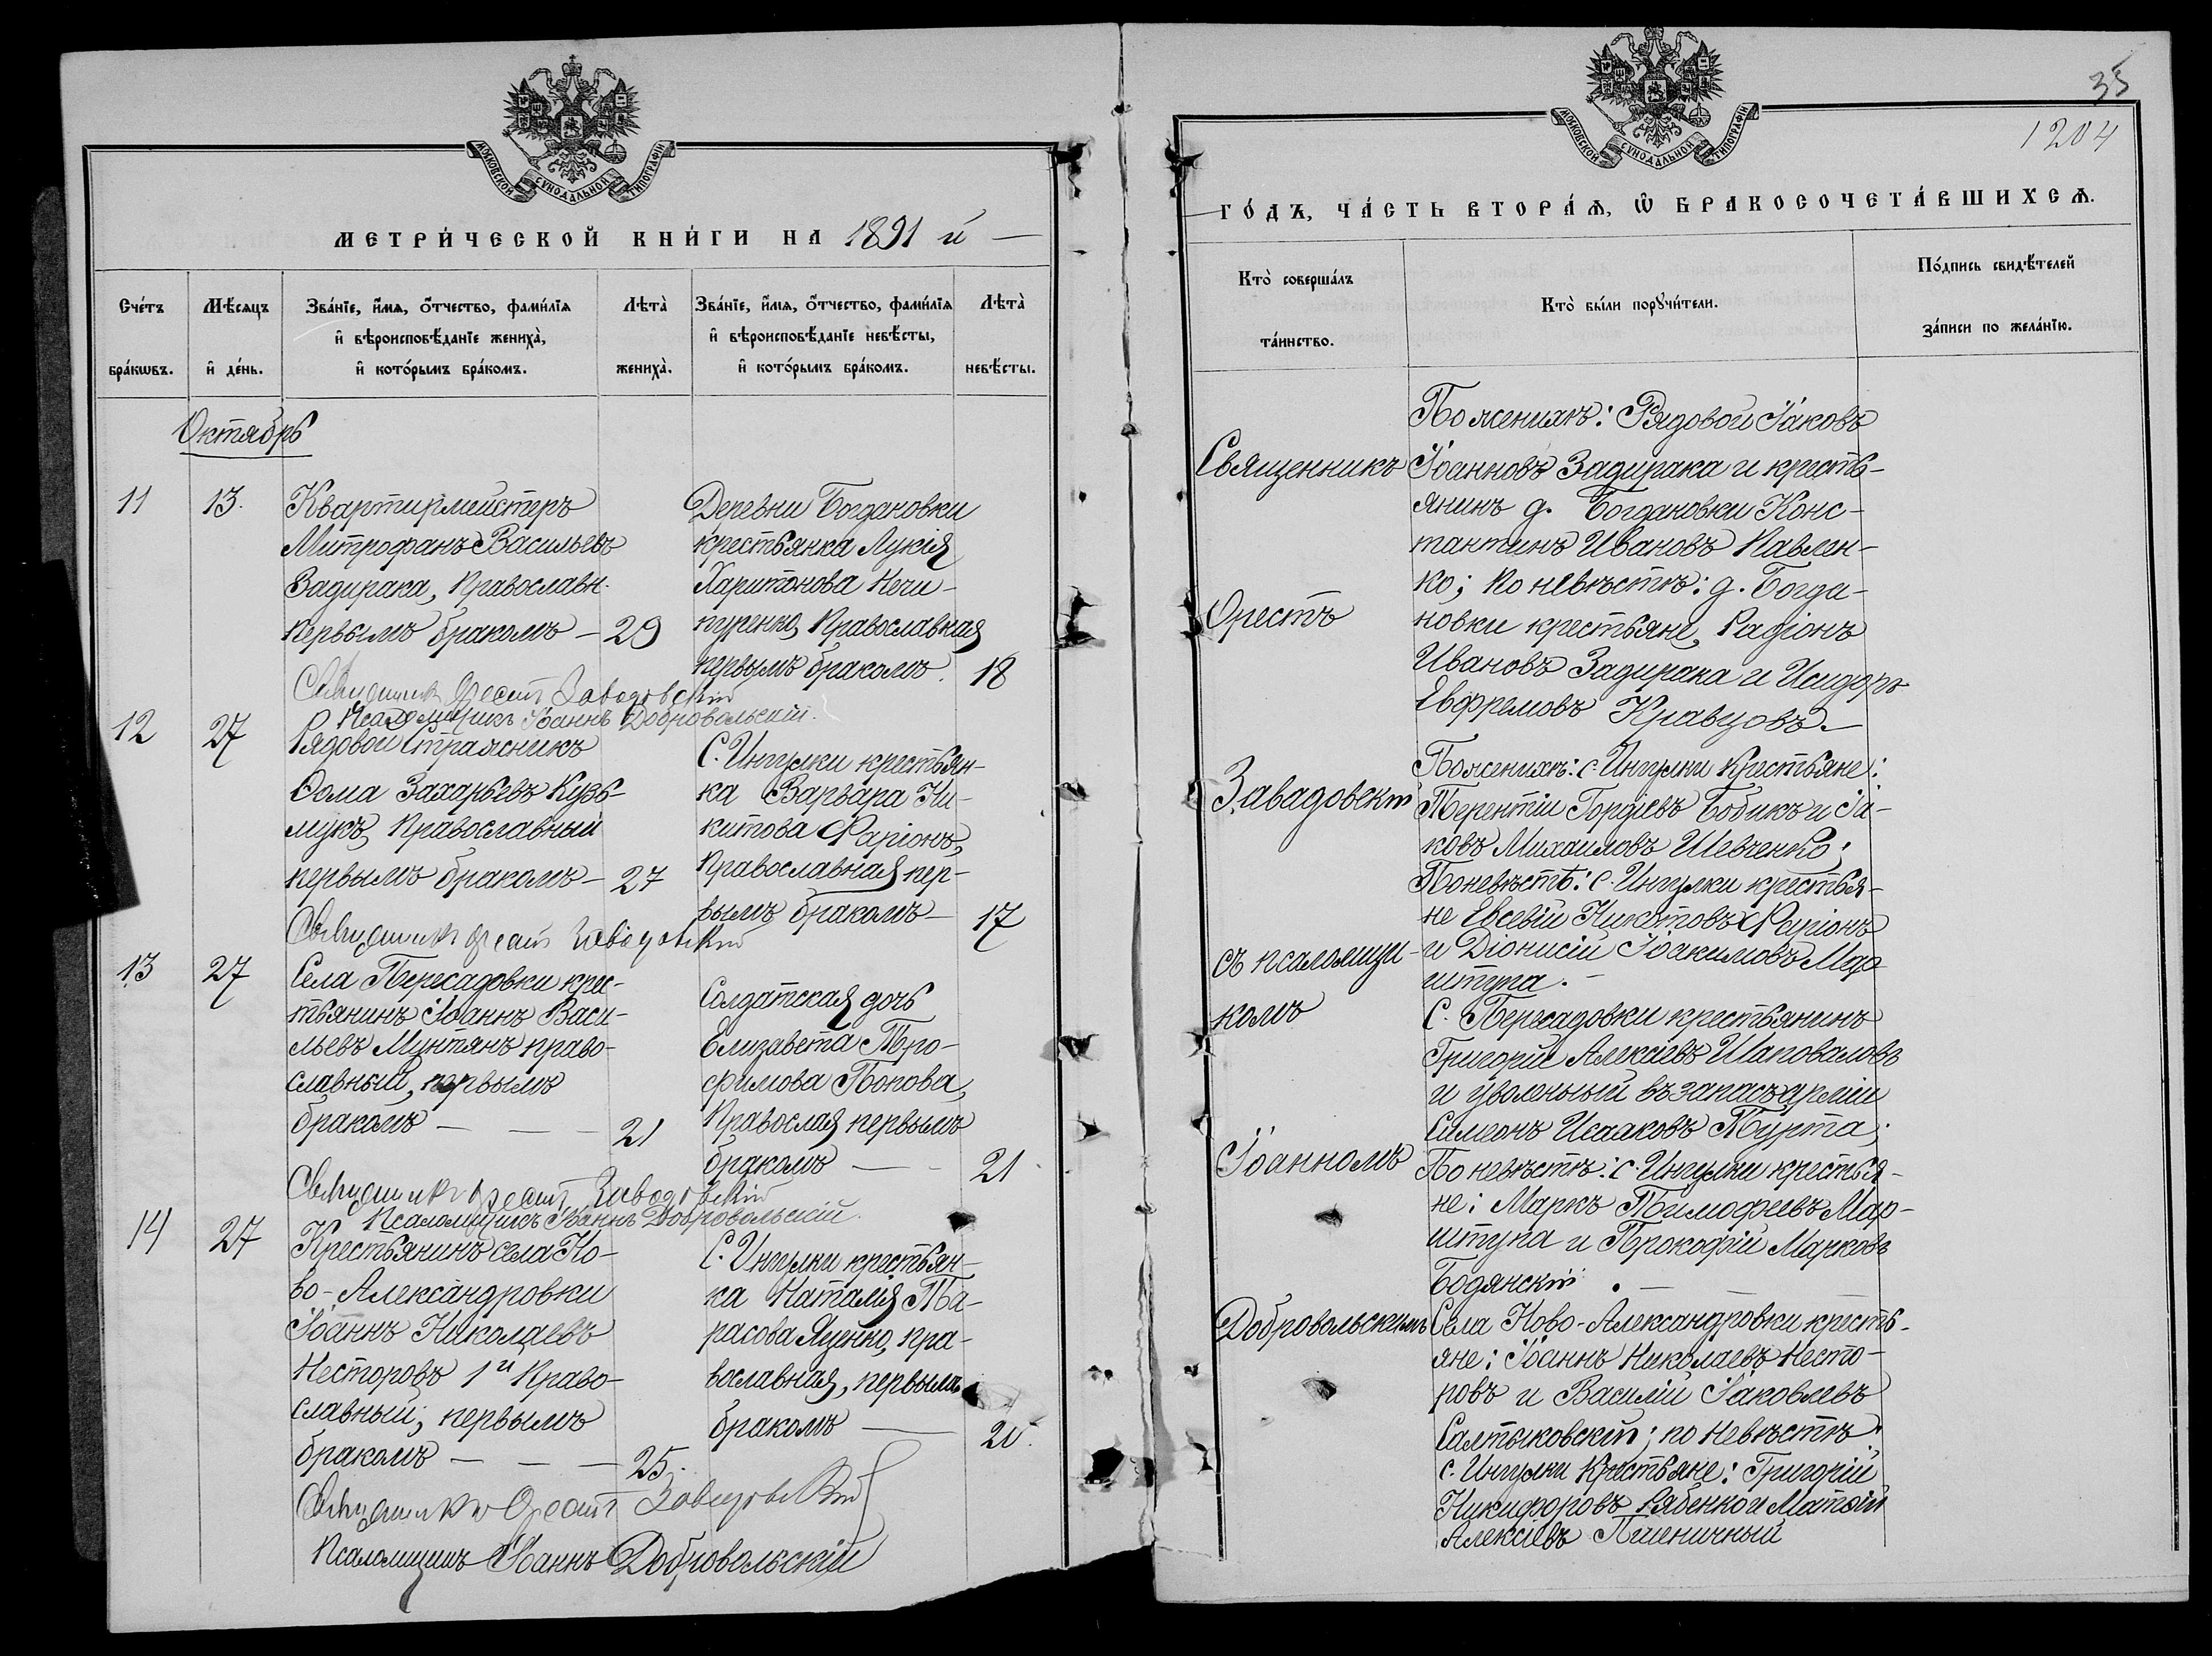 МОСКОВСКОЙ СѴНОДАЛЬНОЙ ТИПОГРАФІИ
МЕТРИ́ЧЕСКОЙ КНИ́ГИ НА 1891 й
Сче́тъ бра́кѡвъ.
Мѣ́сяцъ и҆ де́нь.
Зва́нїе, и҆́мѧ, ѻ҆́тчество, фами́лїѧ
и҆ вѣроисповѣ́данїе жениха̀,
и҆ кото́рымъ бра́комъ.
Лѣта̀ жениха̀.
Зва́нїе, и҆́мѧ, ѻ҆́тчество, фами́лїѧ
и҆ вѣроисповѣ́данїе невѣ́сты,
и҆ кото́рымъ бра́комъ.
Лѣта̀ невѣ́сты.
Октябрь
11
13.
Квартирмейстеръ
Митрофанъ Васильевъ
Задирака, православн.
первымъ бракомъ – 29
Деревни Богдановки
крестьянка Лукія
Харитонова Нечи-
пуренко, Православная
первымъ бракомъ. 18
Священникъ Орестъ Завадовскій
Псаломщикъ Іоаннъ Добровольскій.
12
27
Рядовой Стражникъ
Ѳома Захарьевъ Кузь-
мукъ, Православный
первымъ бракомъ – 27
С. Ингулки крестьян-
ка Варвара Ни-
китова Фаріонъ,
Православная пер-
вымъ бракомъ – 17
Священникъ Орестъ Завадовскій
13
27
Села Пересадовки крес-
тьянинъ Іоаннъ Васи-
льевъ Мунтянъ право-
славный, первымъ
бракомъ – – – 21
Солдатская дочь
Елизавета Тро-
фимова Попова,
Православая первымъ
бракомъ – 21.
Священникъ Орестъ Завадовскій
Псаломщикъ Іоаннъ Добровольскій.
14
27
Крестьянинъ села Но-
во-Александровки
Іоаннъ Николаевъ
Несторовъ 1й Право-
славный; первымъ
бракомъ – – – 25.
С. Ингулки крестьян-
ка Наталія Та-
расова Яценко, пра-
вославная, первымъ
бракомъ –
Священникъ Орестъ Завадовскій
Псаломщикъ Іоаннъ Добровольскій
35
1204
МОСКОВСКОЙ СѴНОДАЛЬНОЙ ТИПОГРАФІИ
ГО́ДЪ, ЧА́СТЬ ВТОРА́Ѧ, Ѡ҆ БРАКОСОЧЕТА́ВШИХСѦ.
Кто̀ соверша́лъ
та́инство.
Кто̀ бы́ли порꙋчи́тели.
По́дпись свидѣ́телей
за́писи по жела́нїю.
Священникъ
Орестъ
Завадовскій
съ псаломщи-
комъ
Іоанномъ
Добровольскимъ
По женихѣ: Рядовой Іаковъ
Іоанновъ Задирака и кресть-
янинъ д. Богдановки Конс-
тантинъ Ивановъ Павлен-
ко; по невѣстѣ: д. Богда-
новки крестьяне, Радіонъ
Ивановъ Задирака и Исидоръ
Евфремовъ Кравцовъ –
По женихѣ: с. Ингулки Крестьяне:
Терентій Гордіевъ Бобикъ и Іа-
ковъ Михаиловъ Шевченко;
По невѣстѣ: с. Ингулки крестья-
не Евсевій Никитовъ Фаріонъ
и Діонисій Іоакимовъ Мар
штупа. –
С. Пересадовки крестьянинъ
Григорій Алексіевъ Шаповаловъ
и уволеный въ запасъ арміи
Симеонъ Исааковъ Турта;
По невѣстѣ: с. Ингулки крестья-
не: Маркъ Тимофеевъ Мар-
штупа и Прокофій Марковъ
Бодянскій. –
Села Ново-Александровки кресть-
яне: Іоаннъ Николаевъ Несто-
ровъ и Василій Іаковлевъ
Салтыковскій; по невѣстѣ:
с. Ингулки Крестьяне: Григорій
Никифоровъ Рябенко и Матѳій
Алексіевъ Пшеничный